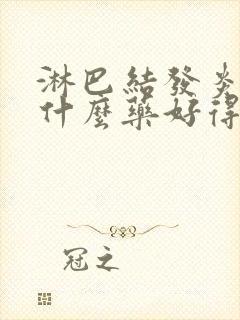 淋巴結發炎
什麼藥好得
冠之